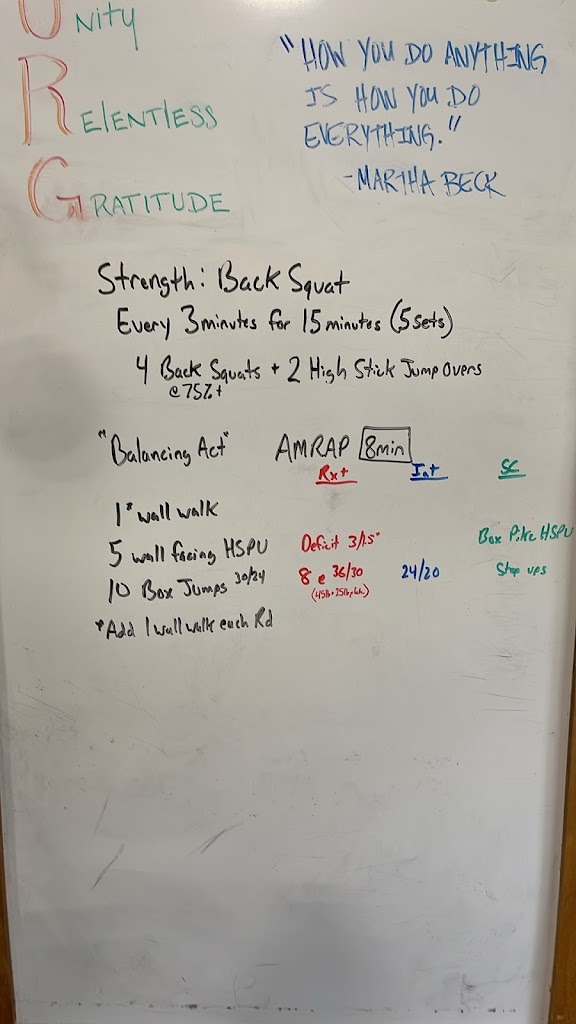 UNITY
RELENTLESS
GRATITUDE
"HOW YOU DO ANYTHING
IS HOW YOU DO
EVERYTHING."
-MARTHA BECK
Strength: Back Squat
Every 3 minutes for 15 minutes (5 sets)
4 Back Squats + 2 High Stick Jump Overs
@ 75%+
"Balancing Act" AMRAP 8min
Rx+ Int SC
1* wall walk
5 wall facing HSPU Deficit 3/1.5" Box Pike HSPU
10 Box Jumps 30/24 8 @ 36/30 24/20 Step ups
(45lb+25lb
*Add 1 wall walk each Rd